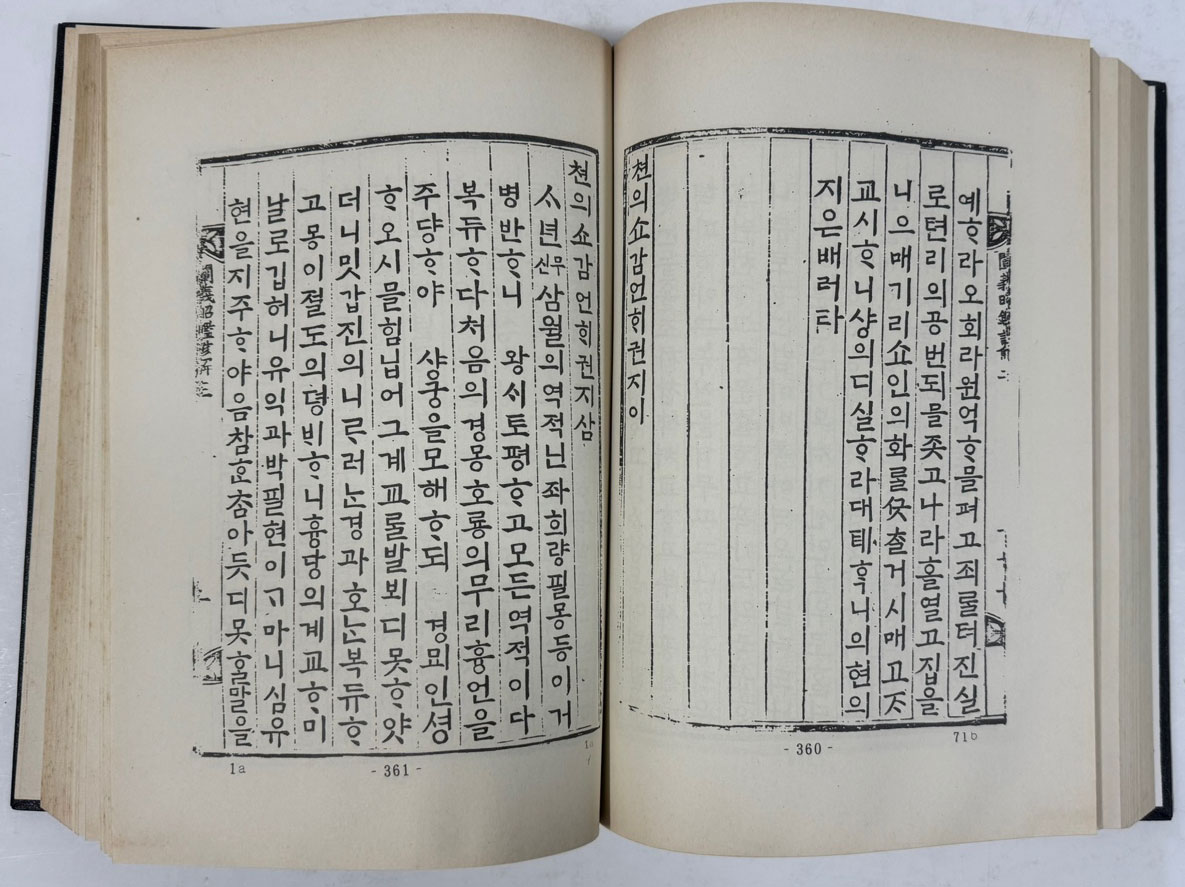 예ᄒᆞ라오회라원억ᄒᆞ믈펴고죄ᄅᆞᆯ텨진실
로텬리의공번되믈좃고나라흘열고집을
니으매기리쇼인의화ᄅᆞᆯ거시매고
교시ᄒᆞ니샹의디실ᄒᆞ라대톄ᄒᆞᆨ니의현의
지은배러라
쳔의쇼감언ᄒᆡ권지이
闡義昭鑑諺解 二
71b
- 360 -
쳔의쇼감언ᄒᆡ권지삼
ᄉᆞ년신묘삼월의역적닌좌희량필몽등이거
병반ᄒᆞ니 왕ᄉᆡ토평ᄒᆞ고모든역적이다
복듀ᄒᆞ다처음의경몽호룡의무리흉언을
주댱ᄒᆞ야 샹궁을모해ᄒᆞ되 경묘인셩
ᄒᆞ오시믈힘닙어그계교ᄅᆞᆯ발뵈디못ᄒᆞ얏
더니밋갑진의니ᄅᆞ러ᄂᆞᆫ경과호ᄂᆞᆫ복듀ᄒᆞ
고몽이졀도의뎡ᄇᆡᄒᆞ니흉당의계교ᄒᆞ미
날로깁허니유익과박필현이ᄀᆞ마니심유
현을지주ᄒᆞ야음참ᄒᆞ아듯디못ᄒᆞᆯ말을
闡義昭鑑諺解 三
1a
- 361 -